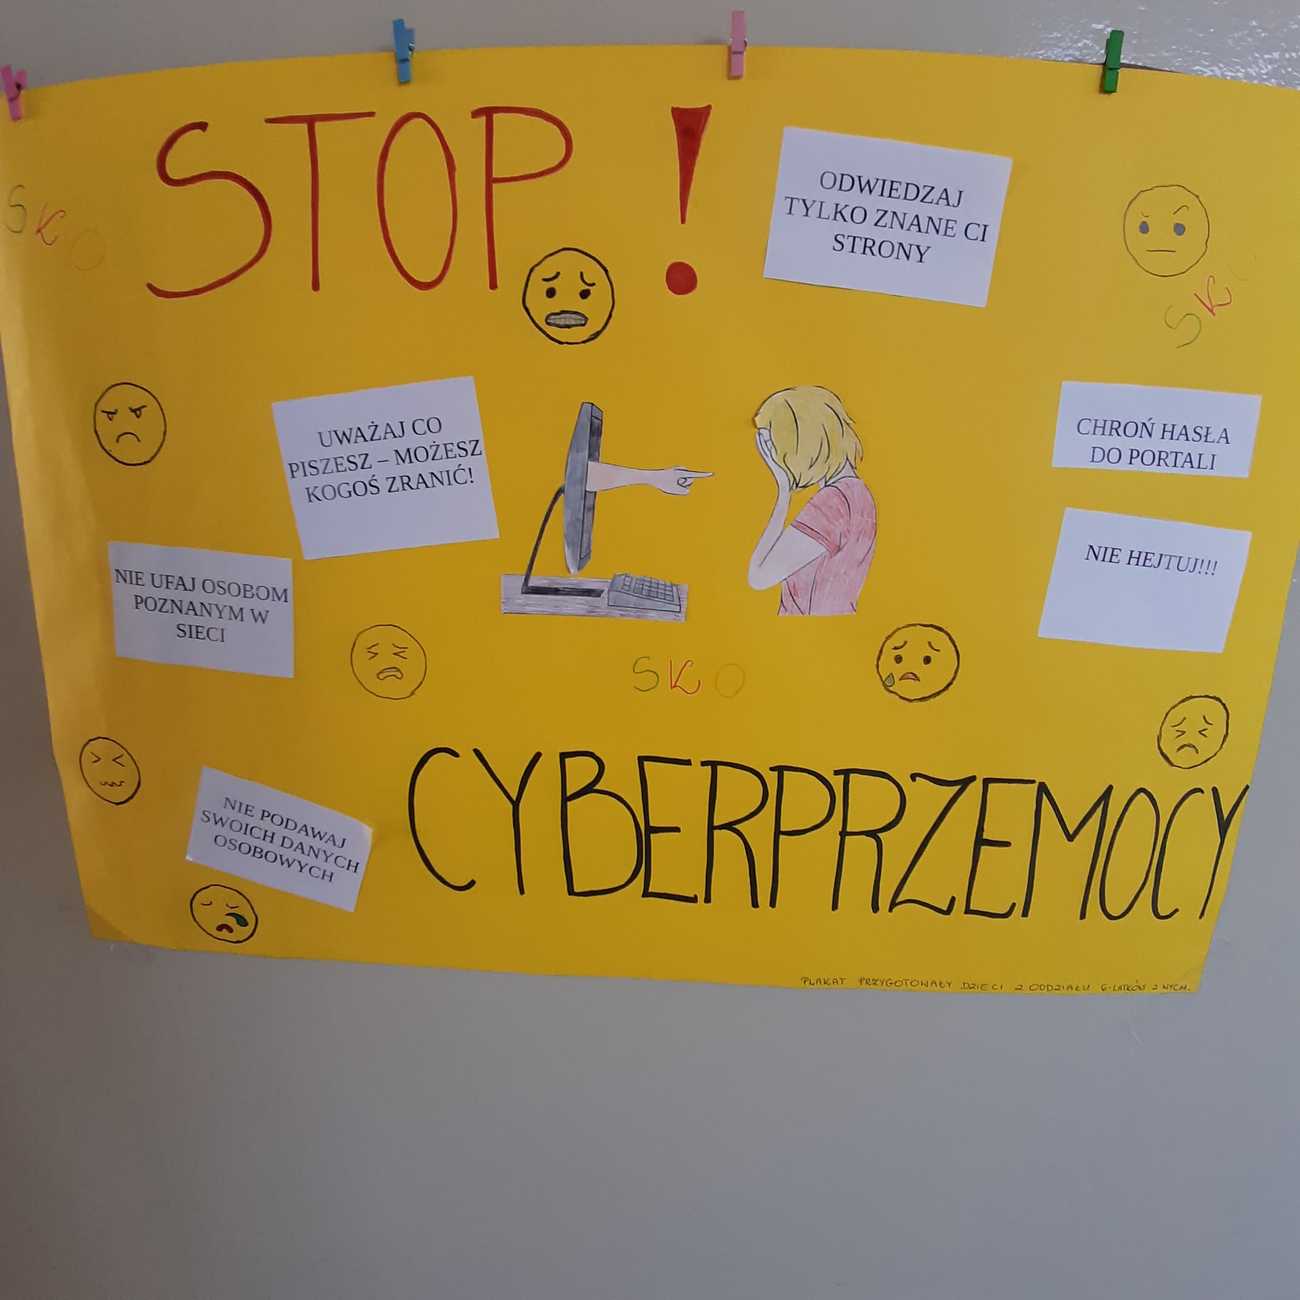 STOP !
SKO
ODWIEDZAJ
TYLKO ZNANE CI
STRONY
SK
UWAŻAJ CO
PISZESZ – MOŻESZ
KOGOŚ ZRANIĆ!
CHROŃ HASŁA
DO PORTALI
NIE HEJTUJ!!!
NIE UFAJ OSOBOM
POZNANYM W
SIECI
SKO
NIE PODAWAJ
SWOICH DANYCH
OSOBOWYCH
CYBERPRZEMOCY
PLAKAT PRZYGOTOWAŁY DZIECI Z ODDZIAŁU 6-LATKÓW